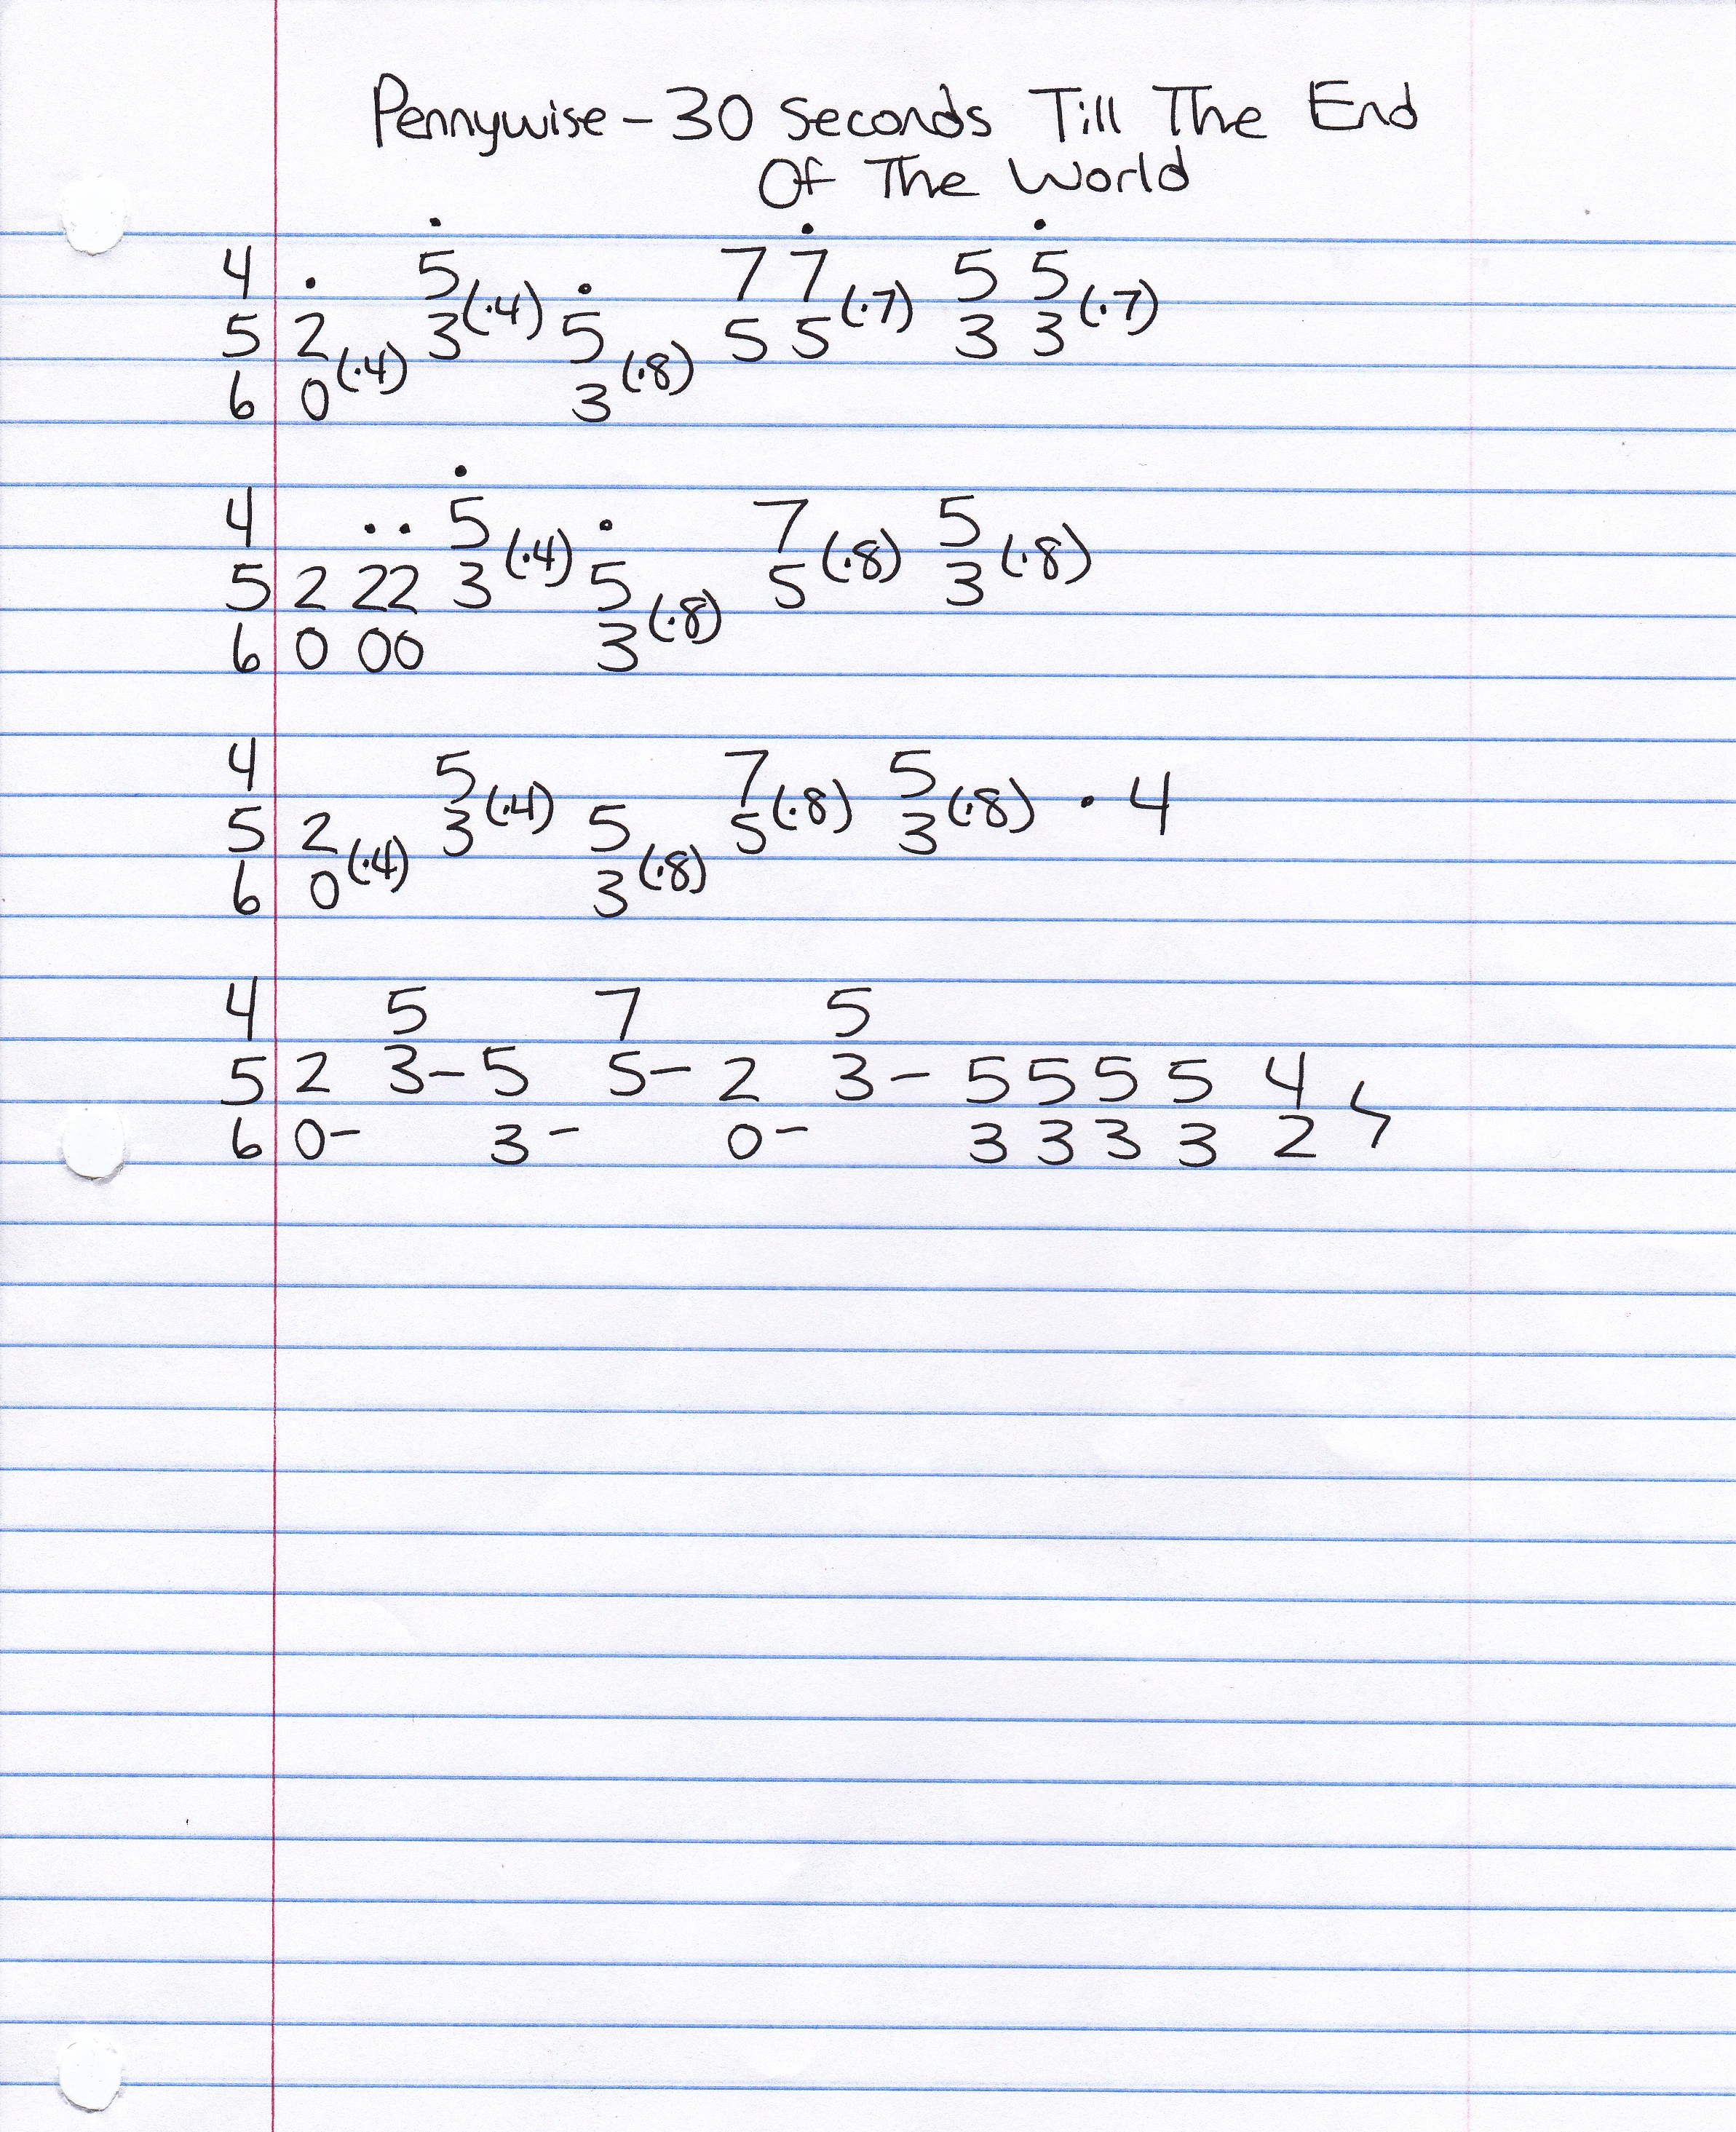 Pennywise - 30 Seconds Till The End
Of The World
4 . 5̇ 7 7̇ 5 5̇
5 2 (.4) 3 (.4) 5̇ 5 5 (.7) 3 3 (.7)
6 0 3 (.8)
4 . . 5̇ . 7 5
5 2 22 3 (.4) 5 5 (.8) 3 (.8)
6 0 00 3 (.8)
4 5 7 5
5 2 3 (.4) 5 5 (.8) 3 (.8) . 4
6 0 (.4) 3 (.8)
4 5 7 5
5 2 3 - 5 5 - 2 3 - 5 5 5 5 4
6 0 - 3 - 0 - 3 3 3 3 2